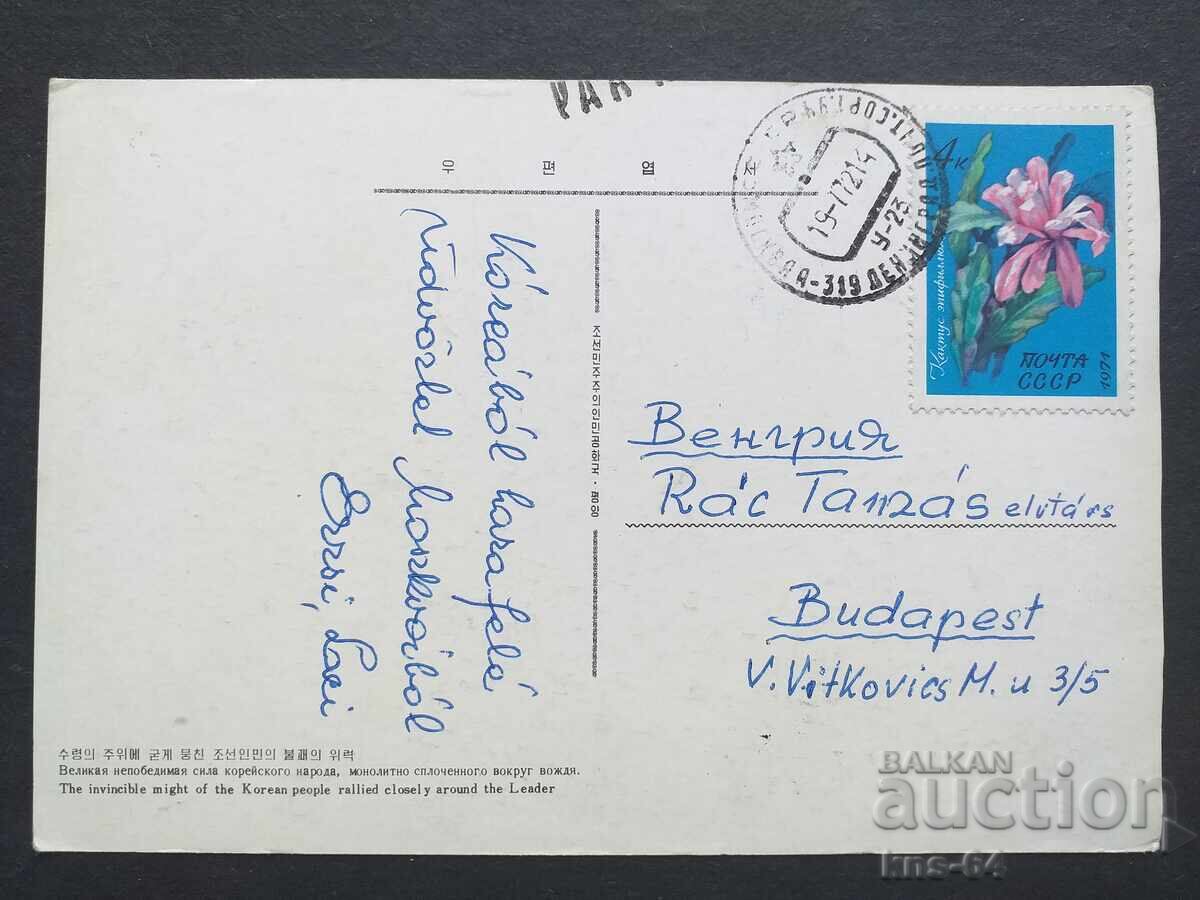 PAR
우편엽조
4к
Кактус эпифиллюм
ПОЧТА
СССР
1971
19-1 72 14
У-23
А-319 ЛЕНИНГРАД ПОЧТ.СОРТ.
Koreából hazafelé
üdvözlet Moszkvából
Erzsi, Laci
조선민주주의인민공화국·평양
Венгрия
Rác Tamás elvtárs
Budapest
V. Vitkovics M. u 3/5
수령의 주위에 굳게 뭉친 조선인민의 불패의 위력
Великая непобедимая сила корейского народа, монолитно сплоченного вокруг вождя.
The invincible might of the Korean people rallied closely around the Leader
BALKAN
auction
kns-64